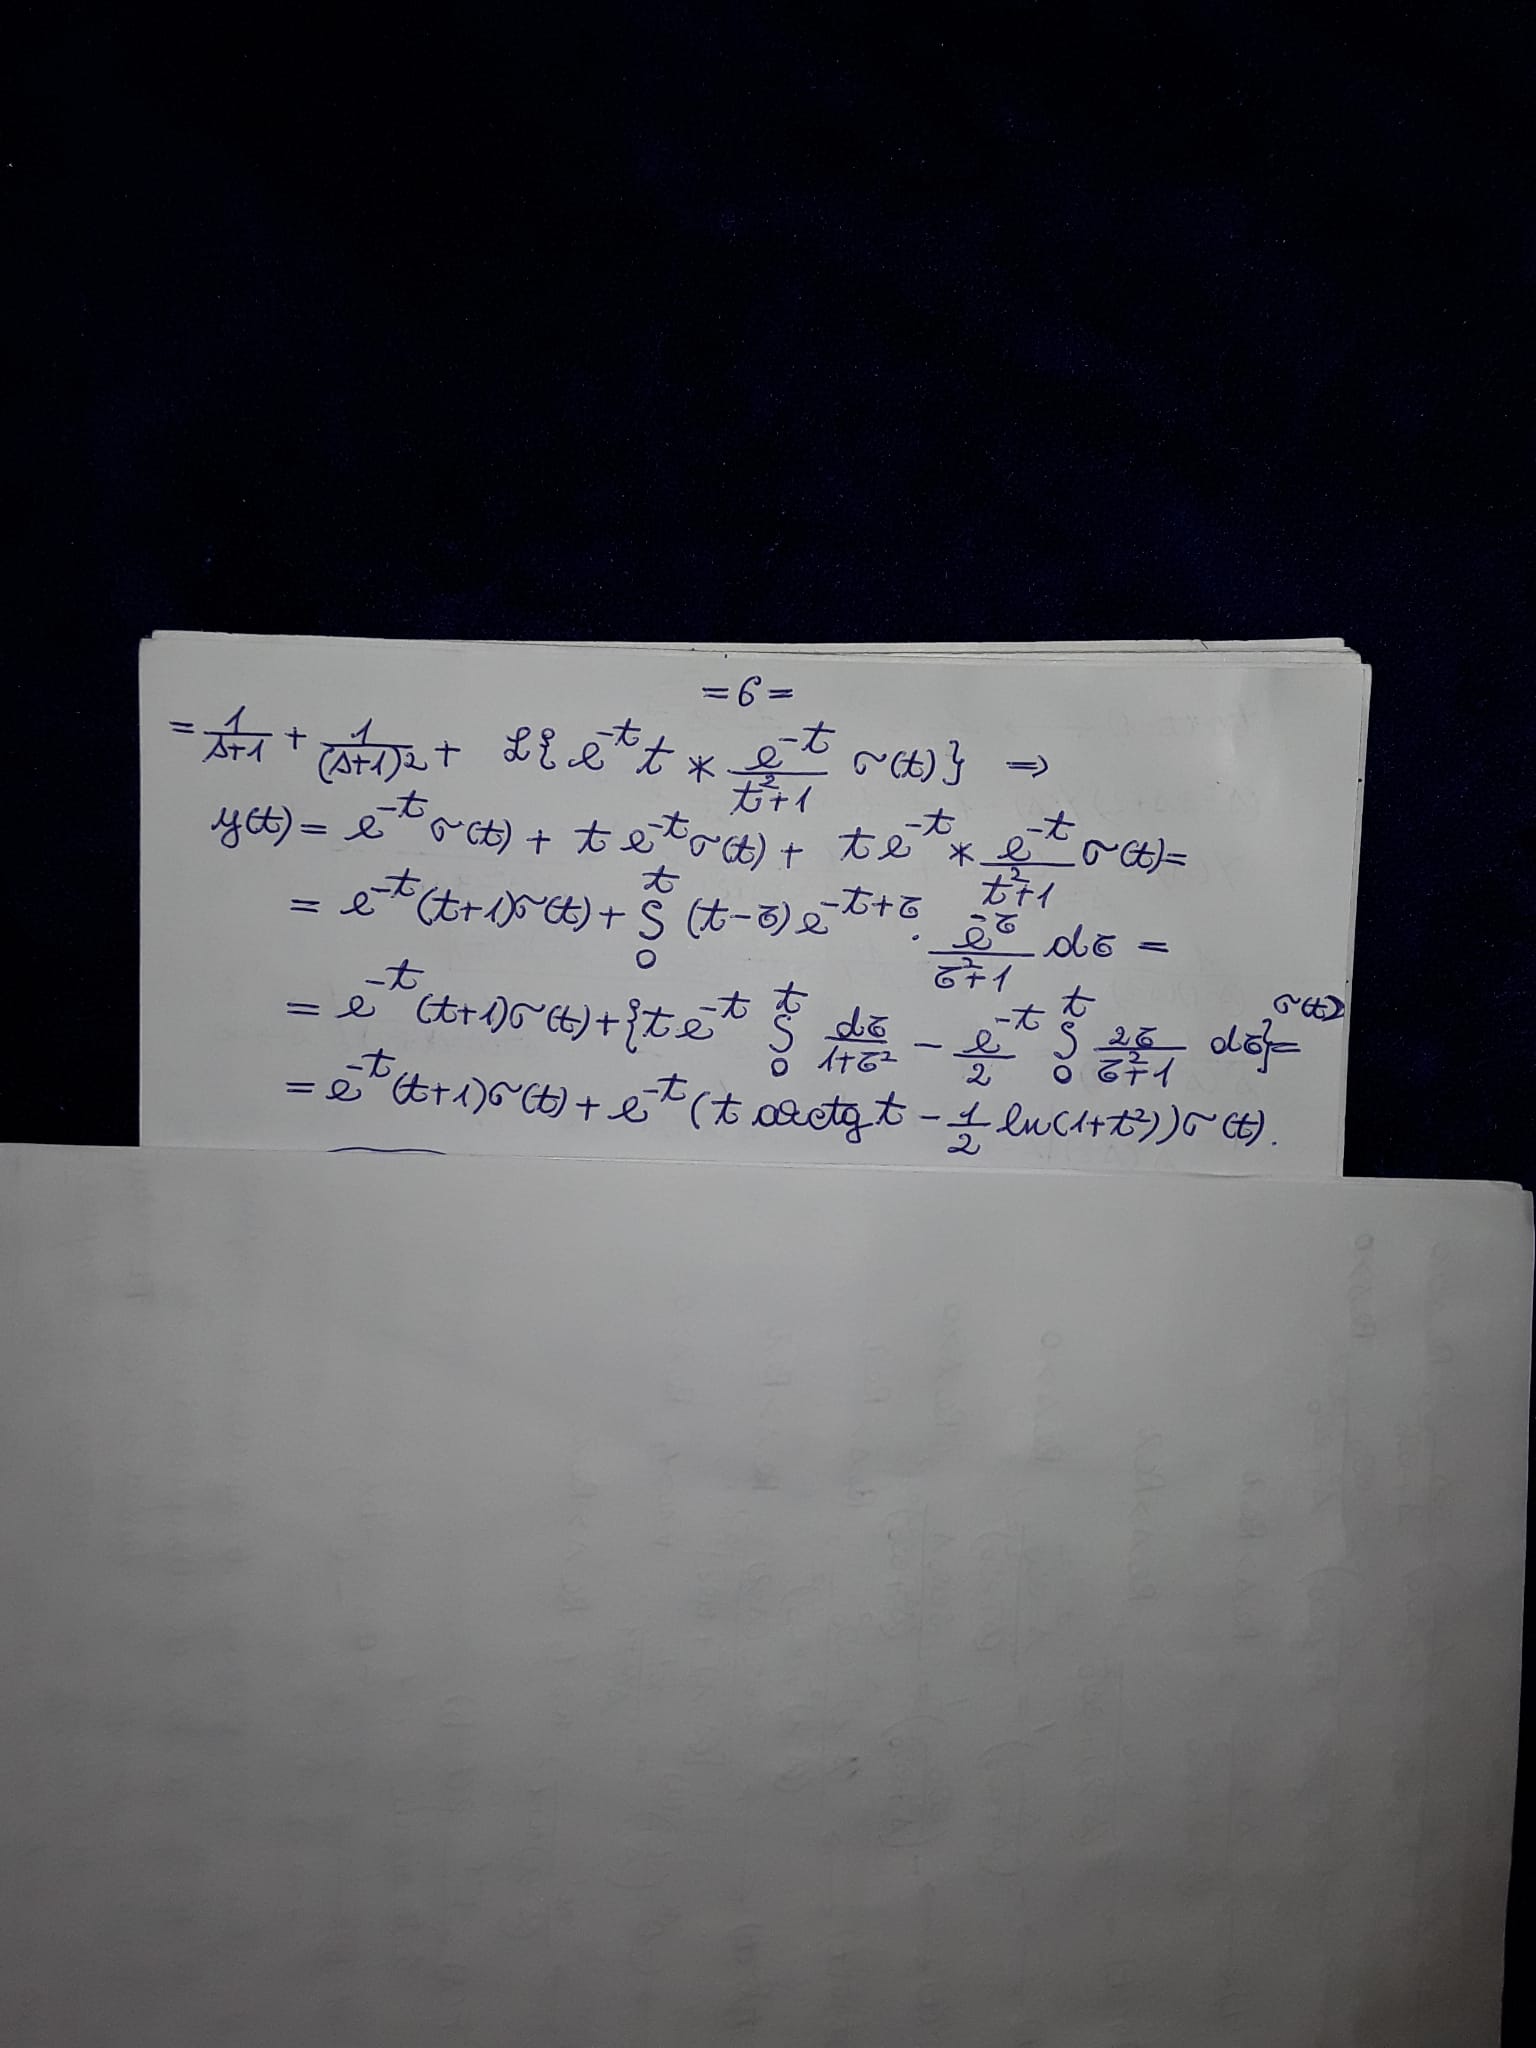 =6=
= 1/(s+1) + 1/(s+1)² + ℒ{e^(-t) t * e^(-t)/(t²+1) σ(t)} ⇒
y(t) = e^(-t) σ(t) + t e^(-t) σ(t) + t e^(-t) * e^(-t)/(t²+1) σ(t) =
= e^(-t) (t+1)σ(t) + ∫₀ᵗ (t-τ) e^(-t+τ) · e^(-τ)/(τ²+1) dτ =
= e^(-t) (t+1)σ(t) + {t e^(-t) ∫₀ᵗ dτ/(1+τ²) - e^(-t)/2 ∫₀ᵗ 2τ/(τ²+1) dτ} σ(t) =
= e^(-t) (t+1)σ(t) + e^(-t) (t arctg t - 1/2 ln(1+t²))σ(t).